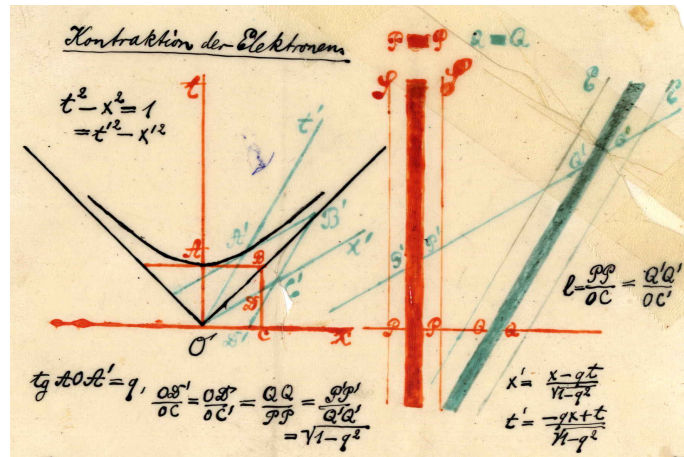 Kontraktion der Elektronen
P P
Q = Q
t² − x² = 1
= t'² − x'²
t
t'
A
A'
B
B'
x'
D
C'
O
D'
C
x
P P
Q Q
Q' Q'
P' P'
l = PP/OC = Q'Q'/OC'
tg AOA' = q, OD'/OC = OD/OC' = QQ/PP = P'P'/Q'Q'
= √1−q²
x' = x−qt/√1−q²
t' = −qx+t/√1−q²